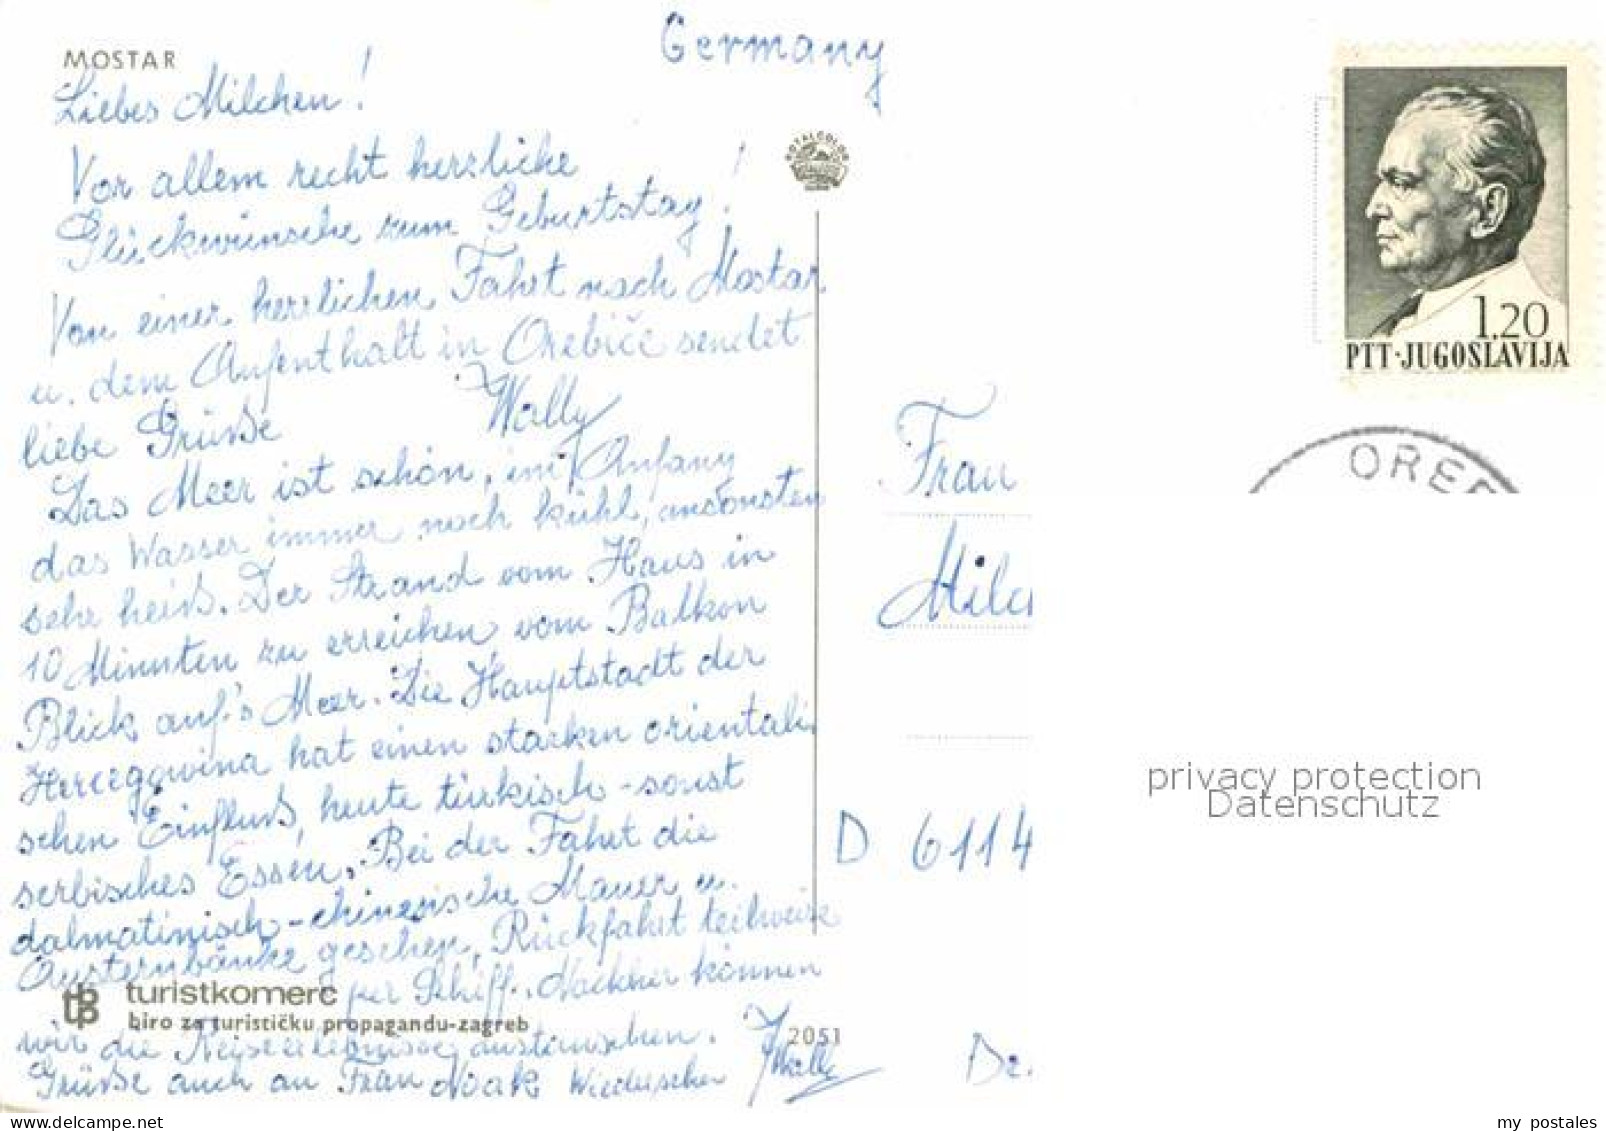 MOSTAR
Germany
Liebes Milchen!
Vor allem recht herzliche
Glückwünsche zum Geburtstag!
Von einer herrlichen Fahrt nach Mostar
u. dem Aufenthalt in Orebiče sendet
liebe Grüße Wally
Das Meer ist schön, im Anfang
das Wasser immer noch kühl, ansonsten
sehr heiß. Der Strand vom Haus in
10 Minuten zu erreichen vom Balkon
Blick auf's Meer. Die Hauptstadt der
Hercegowina hat einen starken orientali
schen Einfluß, heute türkisch - sonst
serbisches Essen. Bei der Fahrt die
dalmatinisch-chinesische Mauer u.
Austernbänke gesehen, Rückfahrt teilweise
per Schiff. Nachher können
wir die Reiseerlebnisse austauschen.
Grüße auch an Frau Noak Wiedersehen Wally
turistkomerc
biro za turističku propagandu-zagreb
2051
TOTALCOLOR
1.20
PTT·JUGOSLAVIJA
OREB
Frau
Milc
D 6114
Dr.
privacy protection
Datenschutz
www.delcampe.net
my_postales